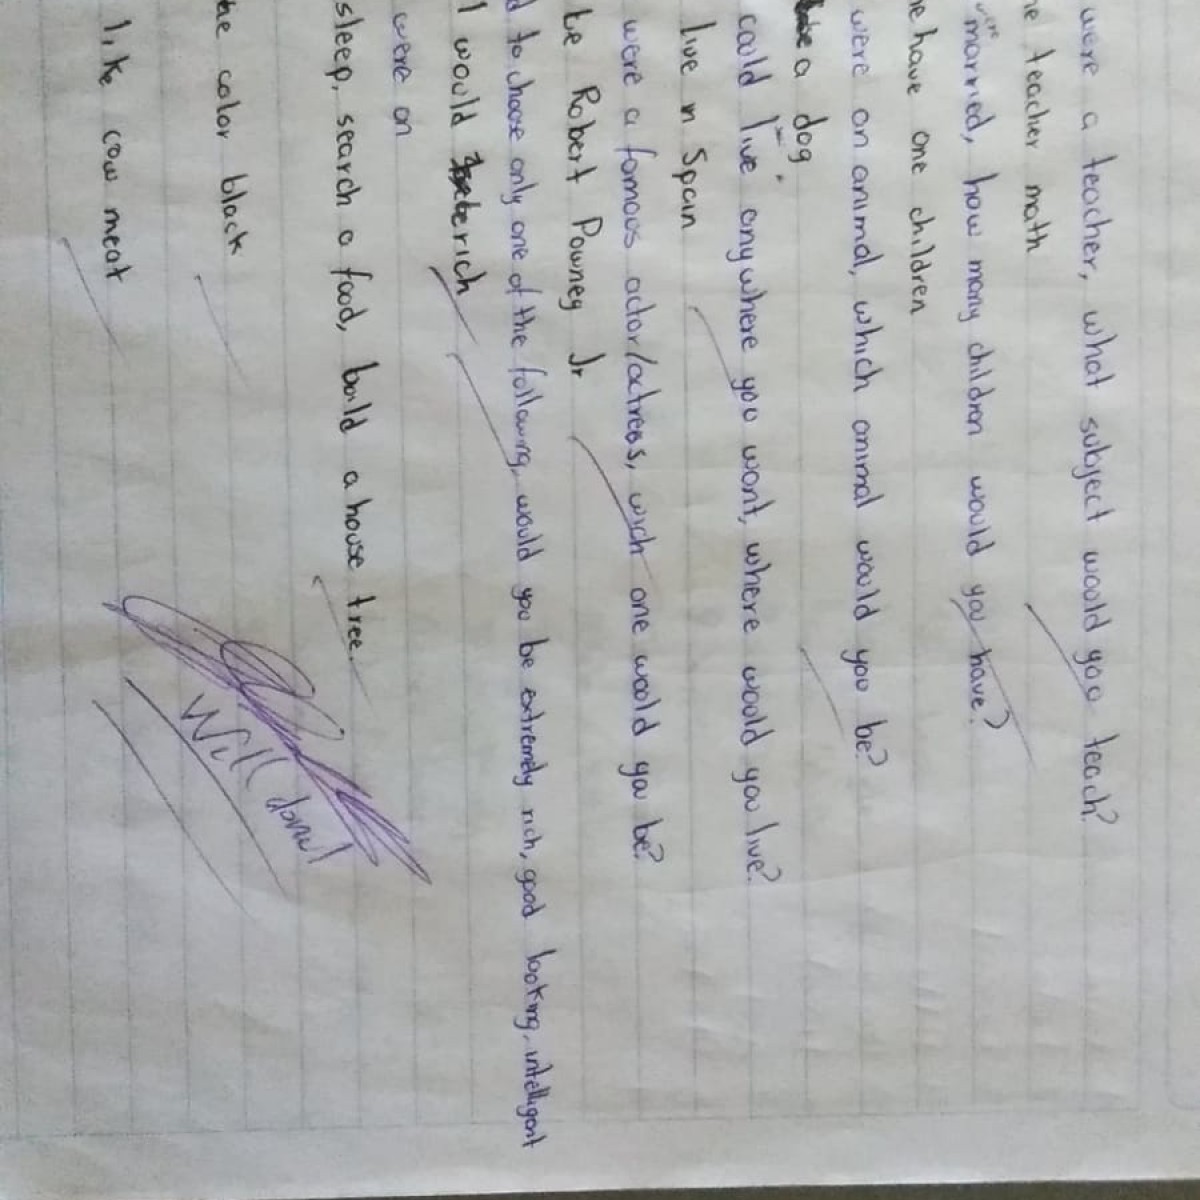 were a teacher, what subject would you teach?
he teacher math
were married, how many children would you have?
he have one children
were an animal, which animal would you be?
be a dog.
could live anywhere you want, where would you live?
live in Spain
were a famous actor/actress, wich one would you be?
be Robert Powney Jr
d to choose only one of the following, would you be extremely rich, good looking, intelligent
I would be rich
were on
sleep, search a food, build a house tree.
he color black
I like cow meat
Well done!